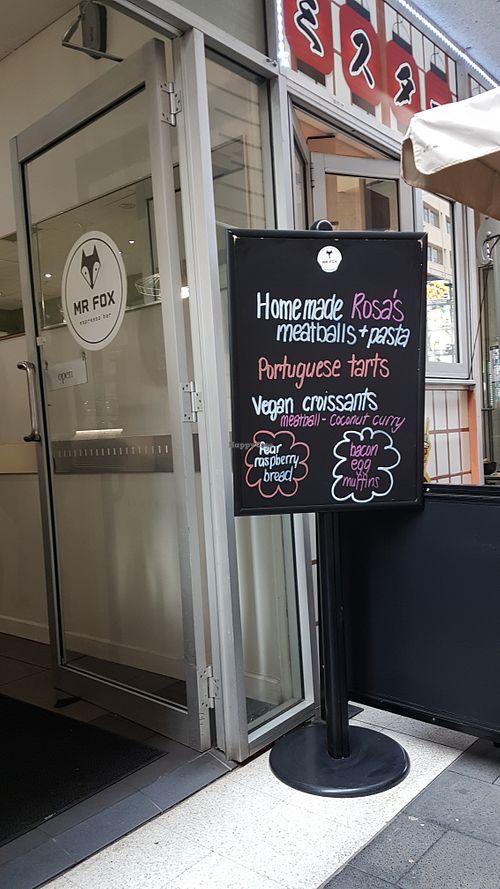 ミスタ
MR FOX
espresso bar
open
MR FOX
Homemade Rosa's
meatballs + pasta
Portuguese tarts
Vegan croissants
meatball - coconut curry
Pear
raspberry
bread
bacon
egg
muffins